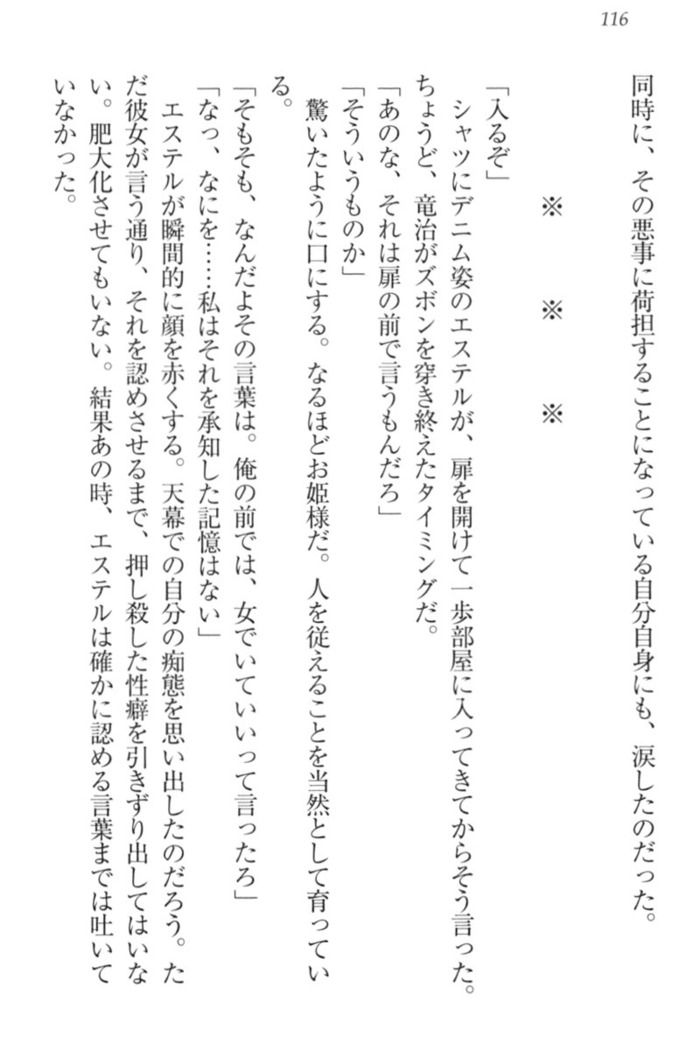 116
同時に、その悪事に荷担することになっている自分自身にも、涙したのだった。
※　※　※
「入るぞ」
　シャツにデニム姿のエステルが、扉を開けて一歩部屋に入ってきてからそう言った。
ちょうど、竜治がズボンを穿き終えたタイミングだ。
「あのな、それは扉の前で言うもんだろ」
「そういうものか」
　驚いたように口にする。なるほどお姫様だ。人を従えることを当然として育ってい
る。
「そもそも、なんだよその言葉は。俺の前では、女でいていいって言ったろ」
「なっ、なにを……私はそれを承知した記憶はない」
　エステルが瞬間的に顔を赤くする。天幕での自分の痴態を思い出したのだろう。た
だ彼女が言う通り、それを認めさせるまで、押し殺した性癖を引きずり出してはいな
い。肥大化させてもいない。結果あの時、エステルは確かに認める言葉までは吐いて
いなかった。